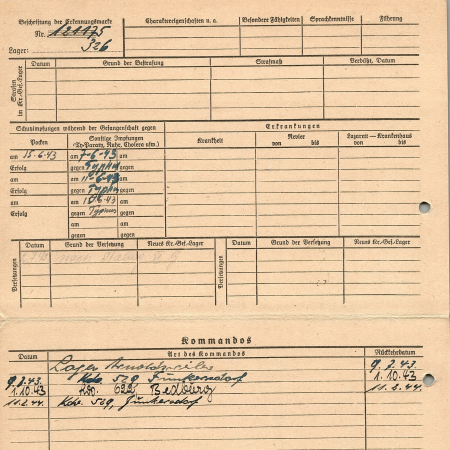 Beschriftung der Erkennungsmarke
Nr. 121175
326
Lager:
Charaktereigenschaften u. a.
Besondere Fähigkeiten
Sprachkenntnisse
Führung
Strafen im Kr.-Gef.-Lager
Datum
Grund der Bestrafung
Strafmaß
Verbüßt, Datum
Schutzimpfungen während der Gefangenschaft gegen
Erkrankungen
Pocken
Sonstige Impfungen
(Ty-Paraty, Ruhr, Cholera usw.)
Krankheit
Revier
von bis
Lazarett — Krankenhaus
von bis
am 15.6.43 am 7-6-43 am
Erfolg gegen Typhus gegen
am am 11.6.43 am
Erfolg gegen Typhus gegen
am am 43 am
Erfolg gegen Typhus gegen
am am
gegen gegen
Versetzungen
Datum
Grund der Versetzung
Neues Kr.-Gef.-Lager
Versetzungen
Datum
Grund der Versetzung
Neues Kr.-Gef.-Lager
nach Stalag
Kommandos
Datum
Art des Kommandos
Rückkehrdatum
Lager Arnoldsweiler
9.2.43. Kdo. 529 Junkersdorf 9.2.43
1.10.43 690 Bedburg 1.10.43
11.2.44. Kdo. 529, Junkersdorf 11.2.44